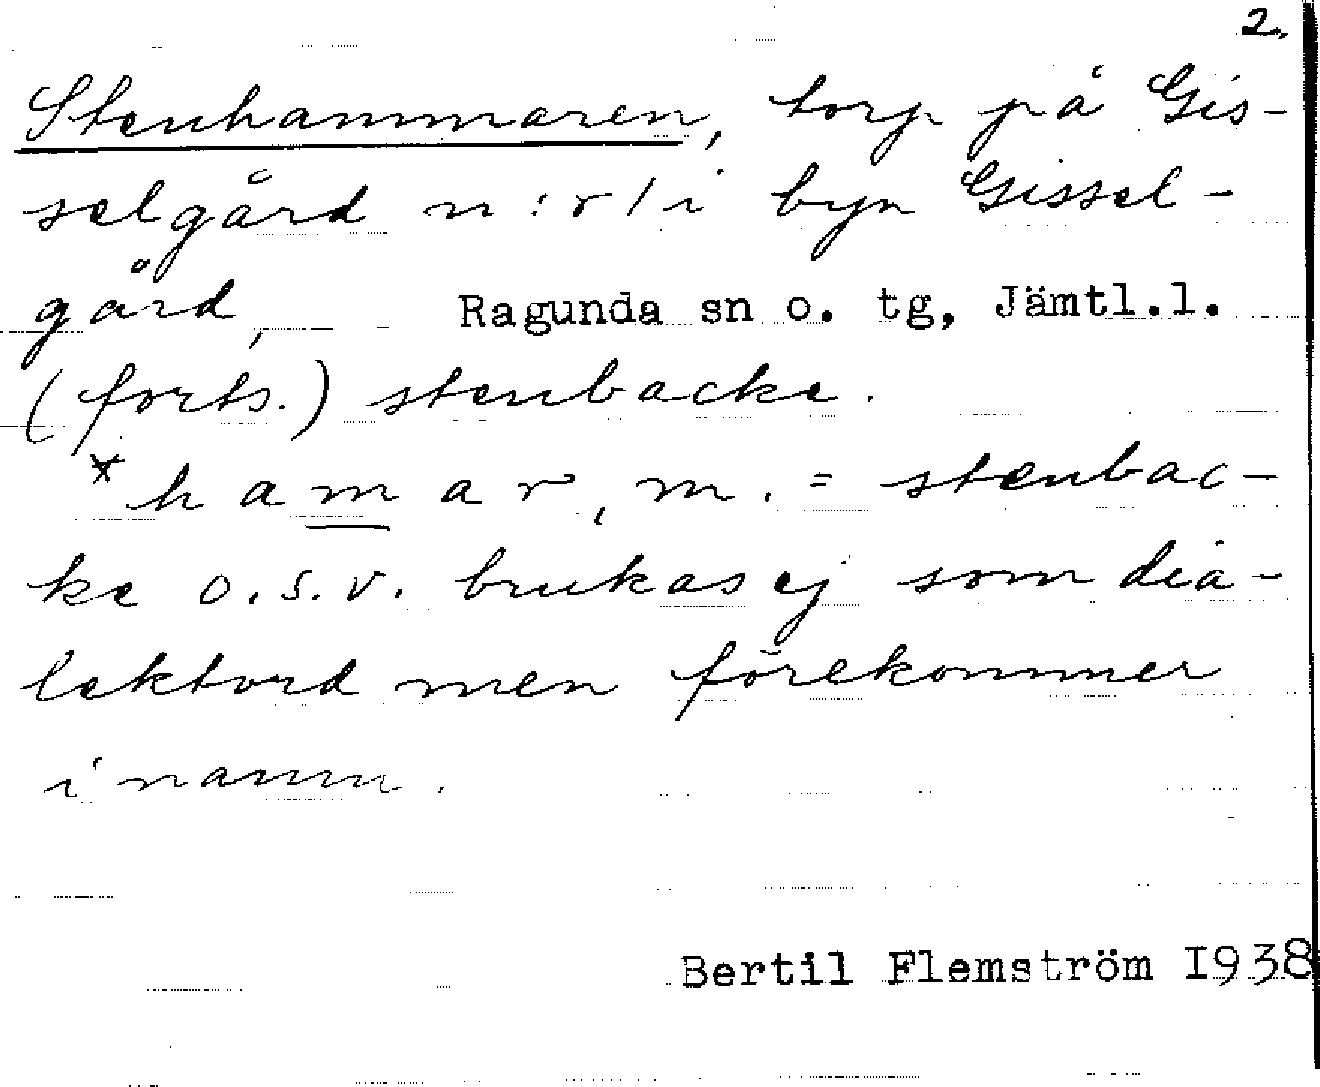 2.
Stenhammaren, torp på Gis-
selgård n:r 1 i byn Gissel-
gård, Ragunda sn o. tg, Jämtl.l.
(forts.) stenbacke.
*hamar, m. = stenbac-
ke o.s.v. brukas ej som dia-
lektord men förekommer
i namn.
Bertil Flemström 1938